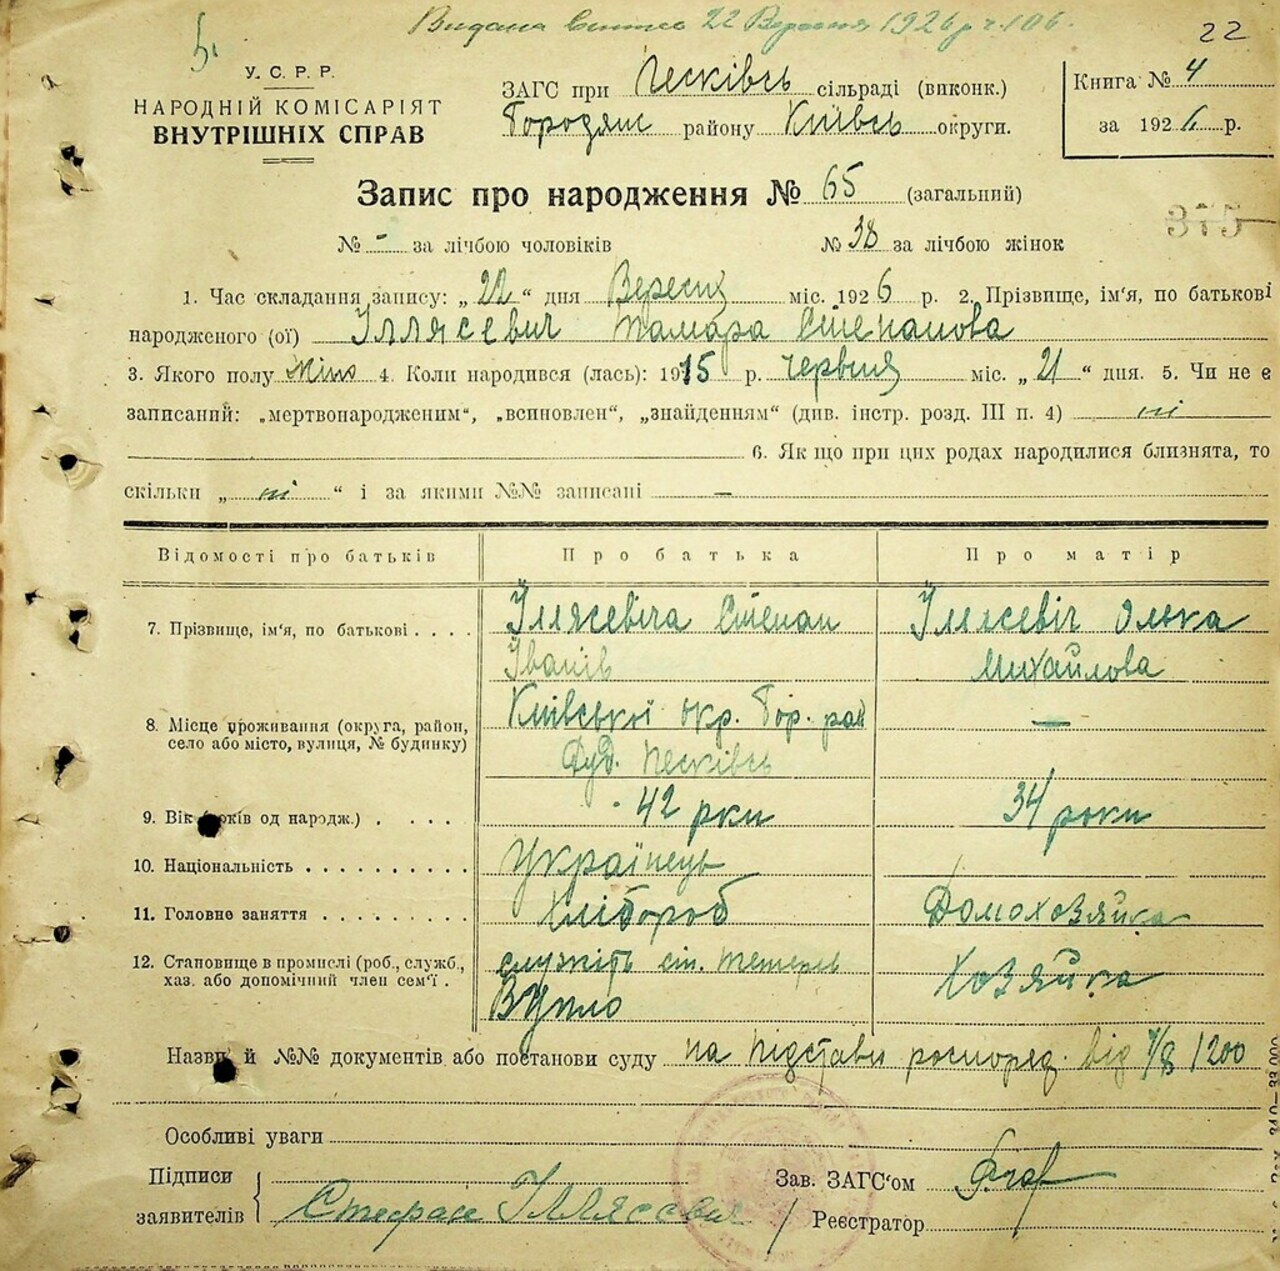 Видана Витяг 22 Вересня 1926 р ч. 106.
22
У. С. Р. Р.
НАРОДНІЙ КОМІСАРІЯТ
ВНУТРІШНІХ СПРАВ
ЗАГС при Песківсь сільраді (виконк.)
Городян району Київсь округи.
Книга № 4
за 1926 р.
Запис про народження № 65 (загальний)
№ - за лічбою чоловіків № 38 за лічбою жінок
1. Час складання запису: „22“ дня Вересня міс. 1926 р. 2. Прізвище, ім'я, по батькові
народженого (ої) Іллясевич Тамара Степанова
3. Якого полу жіно 4. Коли народився (лась): 1915 р. червня міс. „21“ дня. 5. Чи не є
записаний: „мертвонародженим“, „всиновлен“, „знайденням“ (див. інстр. розд. III п. 4) ні
6. Як що при цих родах народилися близнята, то
скільки „ні“ і за якими №№ записані —
Відомості про батьків Про батька Про матір
7. Прізвище, ім'я, по батькові . . . . Іллясевіча Степан Іллясевіч Олька
Іванів Михайлова
8. Місце проживання (округа, район, село або місто, вулиця, № будинку) Київської окр. Гор. рай —
Песківсь
9. Вік (років од народж.) . . . . 42 рки 34 роки
10. Національність . . . . . . . . . . Українець
11. Головне заняття . . . . . . . . . Хлібороб Домохозяйка
12. Становище в промислі (роб., служб., хаз. або допомічний член сем'ї . служіть ст. Тетерев Хозяйка
Назви й №№ документів або постанови суду на підстави роспоряд. від 7/8 1200
Особливі уваги
Підписи
заявителів Стефан Іллясевич
Зав. ЗАГС'ом
Реєстратор